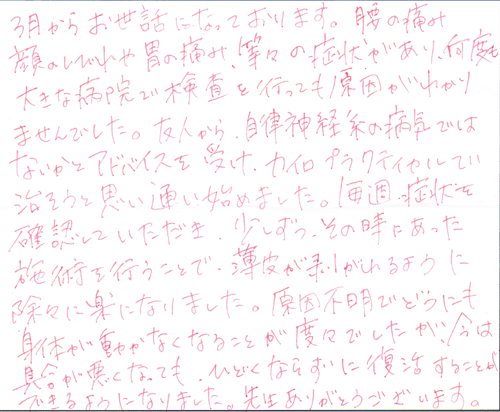 3月からお世話になっております。腰の痛み
顔のしびれや胃の痛み、等々の症状があり、何度も
大きな病院で検査を行っても原因がわかり
ませんでした。友人から、自律神経系の病気では
ないかとアドバイスを受け、カイロプラクティックで
治そうと思い通い始めました。毎週、症状を
確認していただき、少しずつ、その時にあった
施術を行うことで、薄皮が剥がれるように
除々に楽になりました。原因不明でどうにも
身体が動かなくなることが度々でしたが、今は
具合が悪くなっても、ひどくならずに復活することが
できるようになりました。先生ありがとうございます。